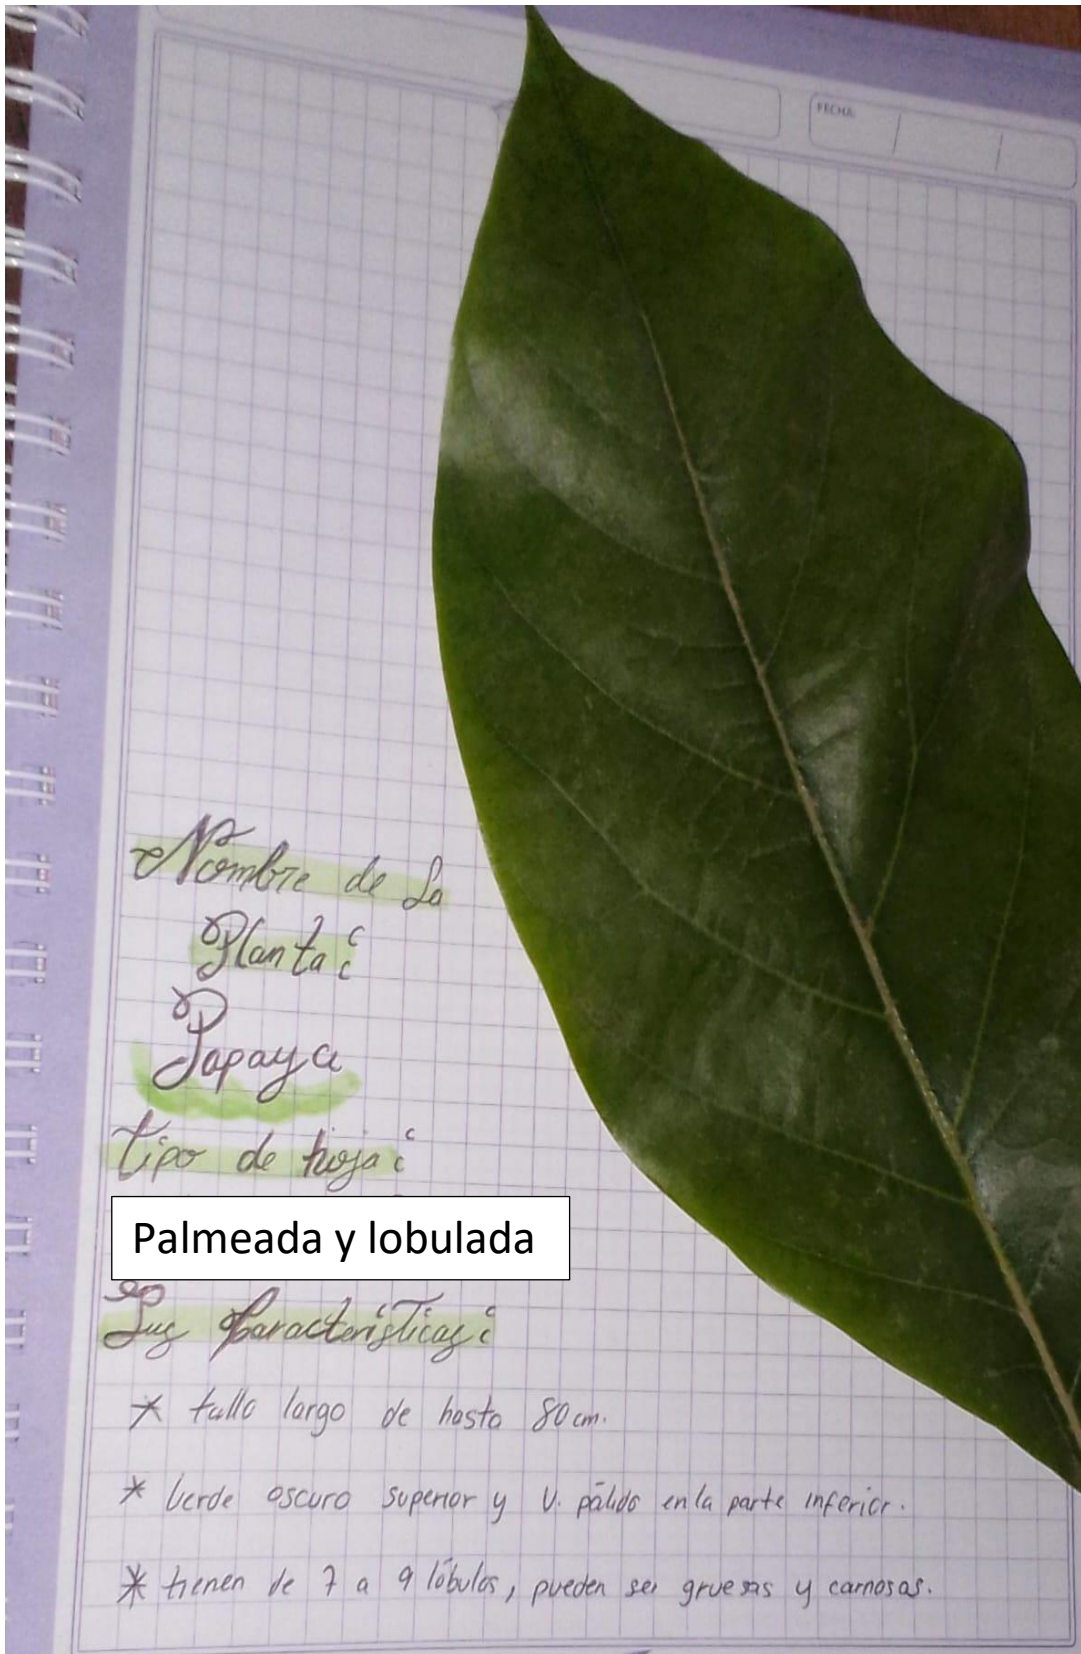 FECHA:
Nombre de la
Planta:
Papaya
tipo de hoja:
Palmeada y lobulada
Sus Características:
* tallo largo de hasta 80 cm.
* Verde oscuro superior y V. pálido en la parte inferior.
* tienen de 7 a 9 lóbulos, pueden ser gruesas y carnosas.